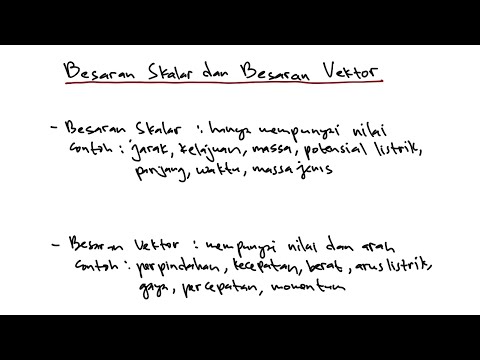 Besaran Skalar dan Besaran Vektor
- Besaran Skalar : hanya mempunyai nilai
contoh : jarak, kelajuan, massa, potensial listrik,
panjang, waktu, massa jenis
- Besaran Vektor : mempunyai nilai dan arah
contoh : perpindahan, kecepatan, berat, arus listrik,
gaya, percepatan, momentum